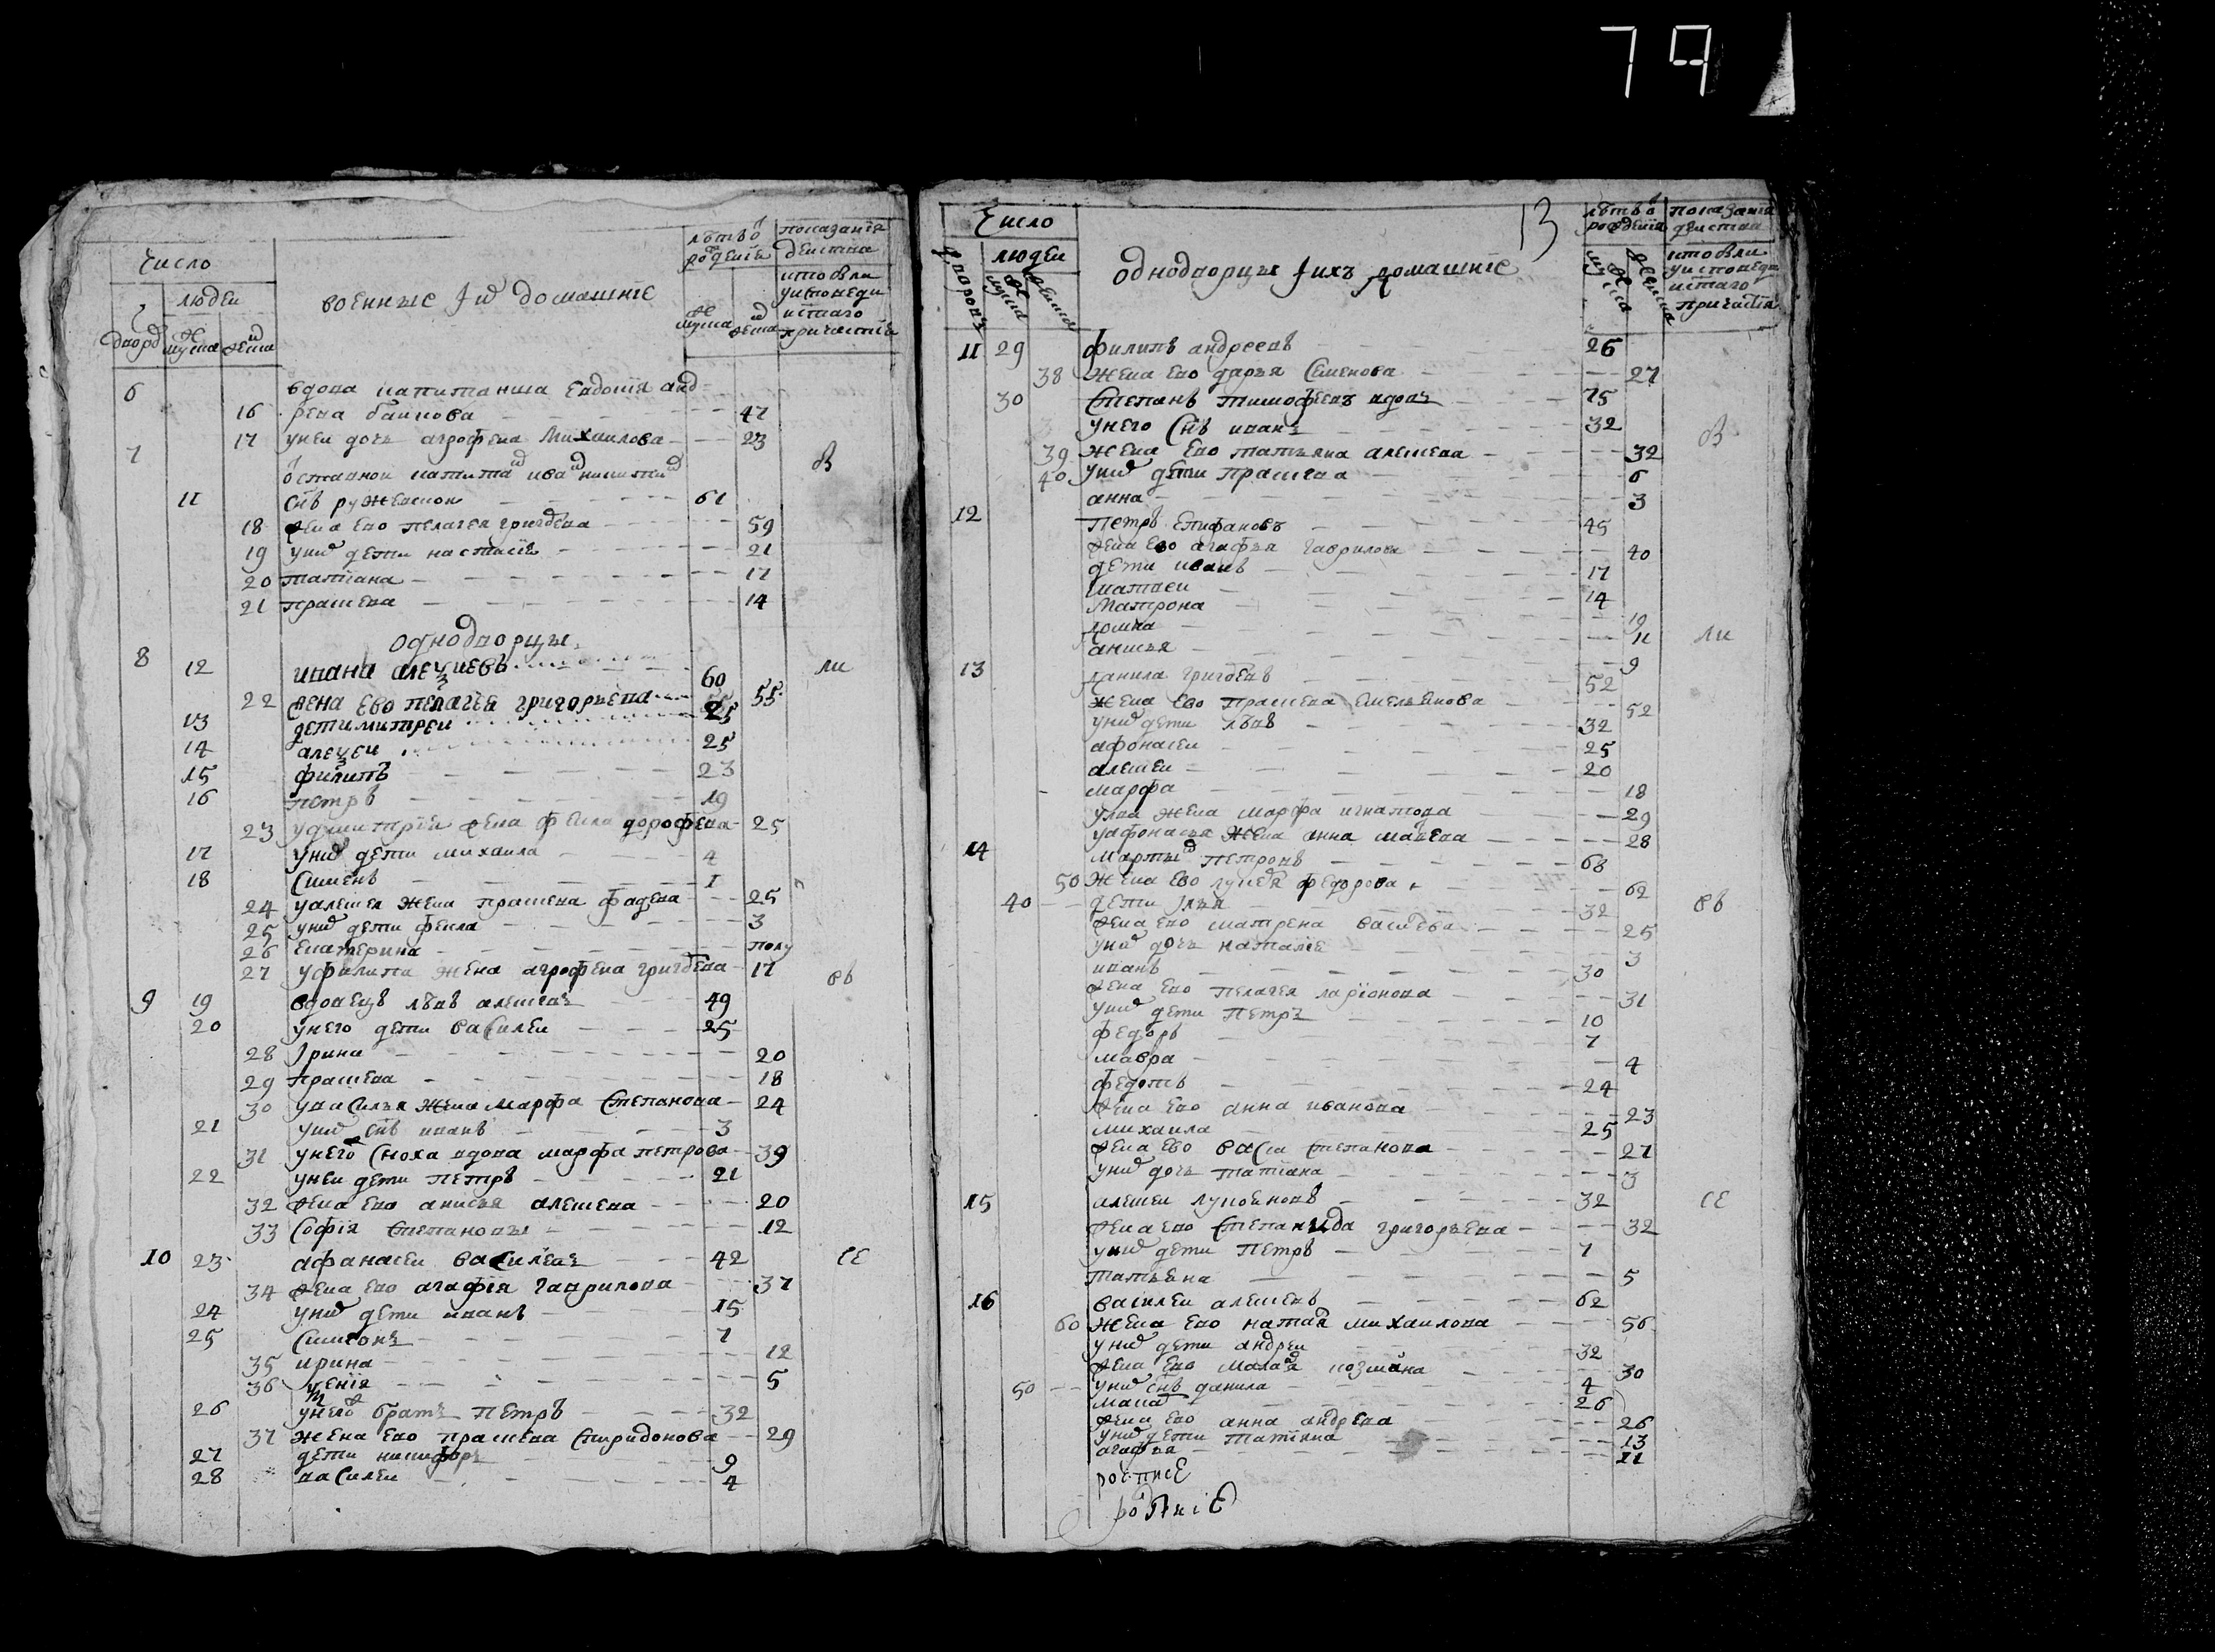 79
число
людеи
дворов
мужеска
женска
военные і их домашніе
лѣт от рожденіи
мужеска
женска
показаніе деиства
кто был у исповеди и стаго причастія
6 вдова капитанша евдокия анд
16 рева баикова 47
17 у неи дочь агрофена михаилова 23
7 отставнои капитан иван никитин
11 снъ ружевскои 61
18 жена ево пелагея григорева 59
19 у них дети настасия 21
20 татиана 17
21 прасковя 14
однодворцы
8 12 ивана алексиевъ 60
22 жена ево пелагея григорьева 55
13 дети митреи 25
14 алексеи 25
15 филипъ 23
16 петръ 19
23 у дмитрия жена фекла дорофева 25
17 у них дети михаила 4
18 симиенъ 1
24 у алексея жена праскева фадева 25
25 у них дети фекла 3
26 екатерина полу
27 у филипа жена агрофена григорева 17
9 19 вдовецъ лъвъ алексевъ 49
20 у него дети василеи 25
28 ірина 20
29 праскева 18
30 у василья жена марфа степанова 24
21 у них снъ иванъ 3
31 у него сноха вдова марфа петрова 39
22 у неи дети петръ 21
32 жена ево анисья алексева 20
33 софия степановы 12
10 23 афанасеи василевъ 42
34 жена ево агафия гаврилова 37
24 у них дети иванъ 15
25 симионъ 7
35 ирина 12
36 ксения 5
26 у него братъ петръ 32
37 жена ево праскева спиридонова 29
27 дети никифоръ 9
28 василеи 4
13
число
людеи
дворовъ
мужеска
женска
однодворцы іихъ домашніе
лѣтъ от рожденія
мужеска
женска
показанія деиства
кто были у исповеди и стаго причастія
11 29 филипъ андреевъ 26
38 жена ево дарья семенова 27
30 степанъ тимофеевъ вдовъ 75
у него снъ иванъ 32
39 жена ево татьяна алексева 32
40 у них дети праскева 6
анна 3
12 петръ епифановъ 45
жена ево агафья гаврилова 40
дети иванъ 17
матвеи 14
матрона 19
домна 11
анисья 9
13 данила григоревъ 52
жена ево праскева емельянова 52
у них дети лъвъ 32
афонасеи 25
алексеи 20
марфа 18
у лва жена марфа игнатова 29
у афонасья жена анна матвева 28
14 мартын петровъ 63
50 жена ево лукеря федорова 62
40 дети ілья 32
жена ево матрена васильева 25
у них дочь наталіе 3
иванъ 30
жена ево пелагея ларіонова 31
у них дети петръ 10
федоръ 7
мавра 4
федотъ 24
жена ево анна иванова 23
михаила 25
жена ево васса степанова 27
у них дочь татіана 3
15 алексеи лукояновъ 32
жена ево степанида григорьева 32
у них дети петръ 7
татьяна 5
16 василеи алексевъ 62
60 жена ево наталя михаилова 56
у них дети андреи 32
жена ево козмина 30
50 у них снъ данила 4
26
жена ево анна андрева 26
у них дети татіяна 13
агафья 11
роспісе